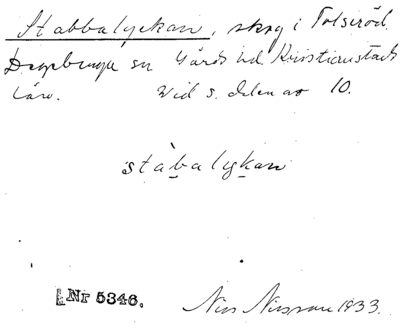 Stabbalyckan, skog i Tolseröd
Degeberga sn Gärds hd. Kristianstads
län. Vid s. delen av 10.
stàbalykan
Nr 5346. Nils Nilsson 1933.